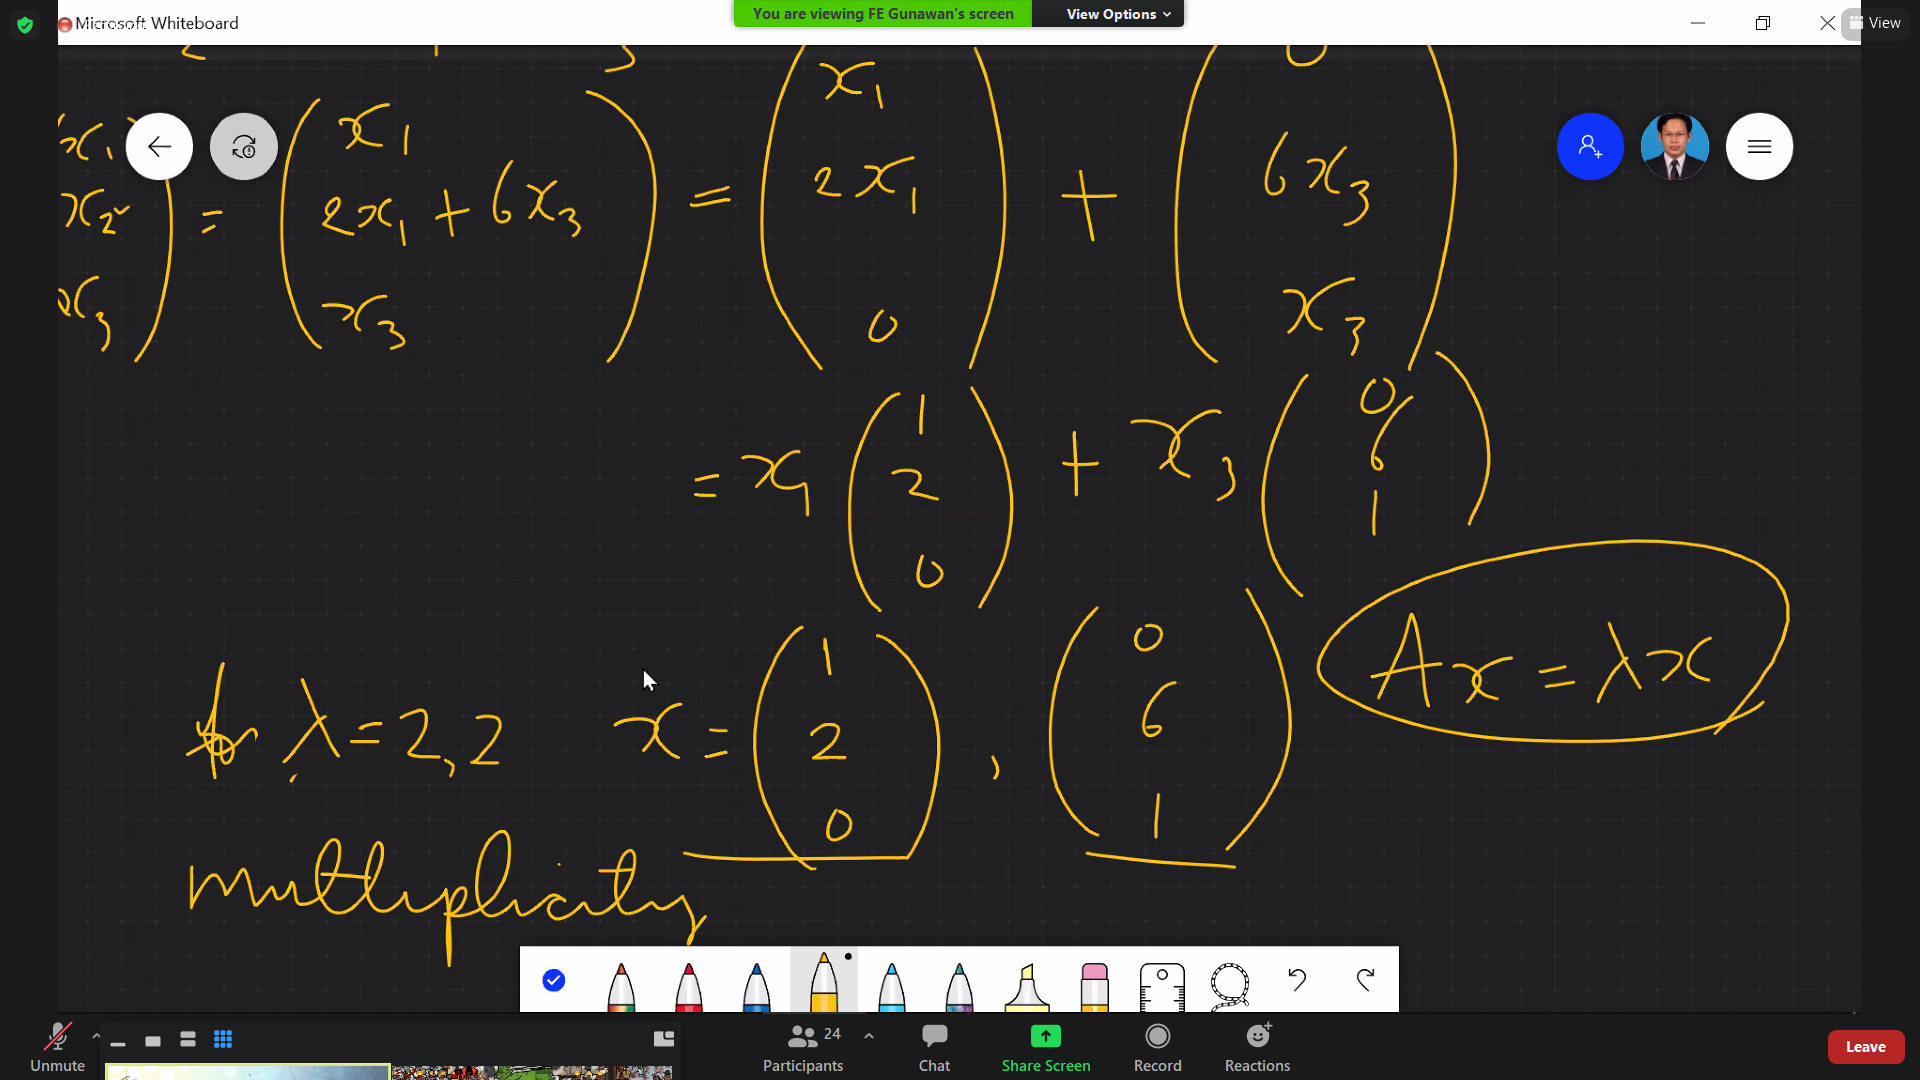 Microsoft Whiteboard
You are viewing FE Gunawan's screen
View Options
View
x₁
x₂ = ( x₁ 2x₁ + 6x₃ x₃ ) = ( x₁ 2x₁ 0 ) + ( 0 6x₃ x₃ )
x₃
= x₁ ( 1 2 0 ) + x₃ ( 0 6 1 )
Ax = λx
for λ = 2,2 x = ( 1 2 0 ) , ( 0 6 1 )
multiplicity
Unmute
Participants
24
Chat
Share Screen
Record
Reactions
Leave